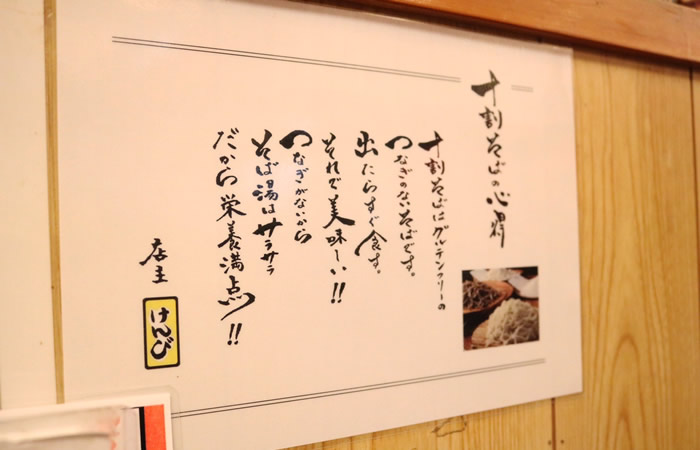 十割そばの心得
十割そばはグルテンフリーの
つなぎのないそばです。
出たらすぐ食す。
それで美味しい!!
つなぎがないから
そば湯はサラサラ
だから栄養満点!!
店主
けんび